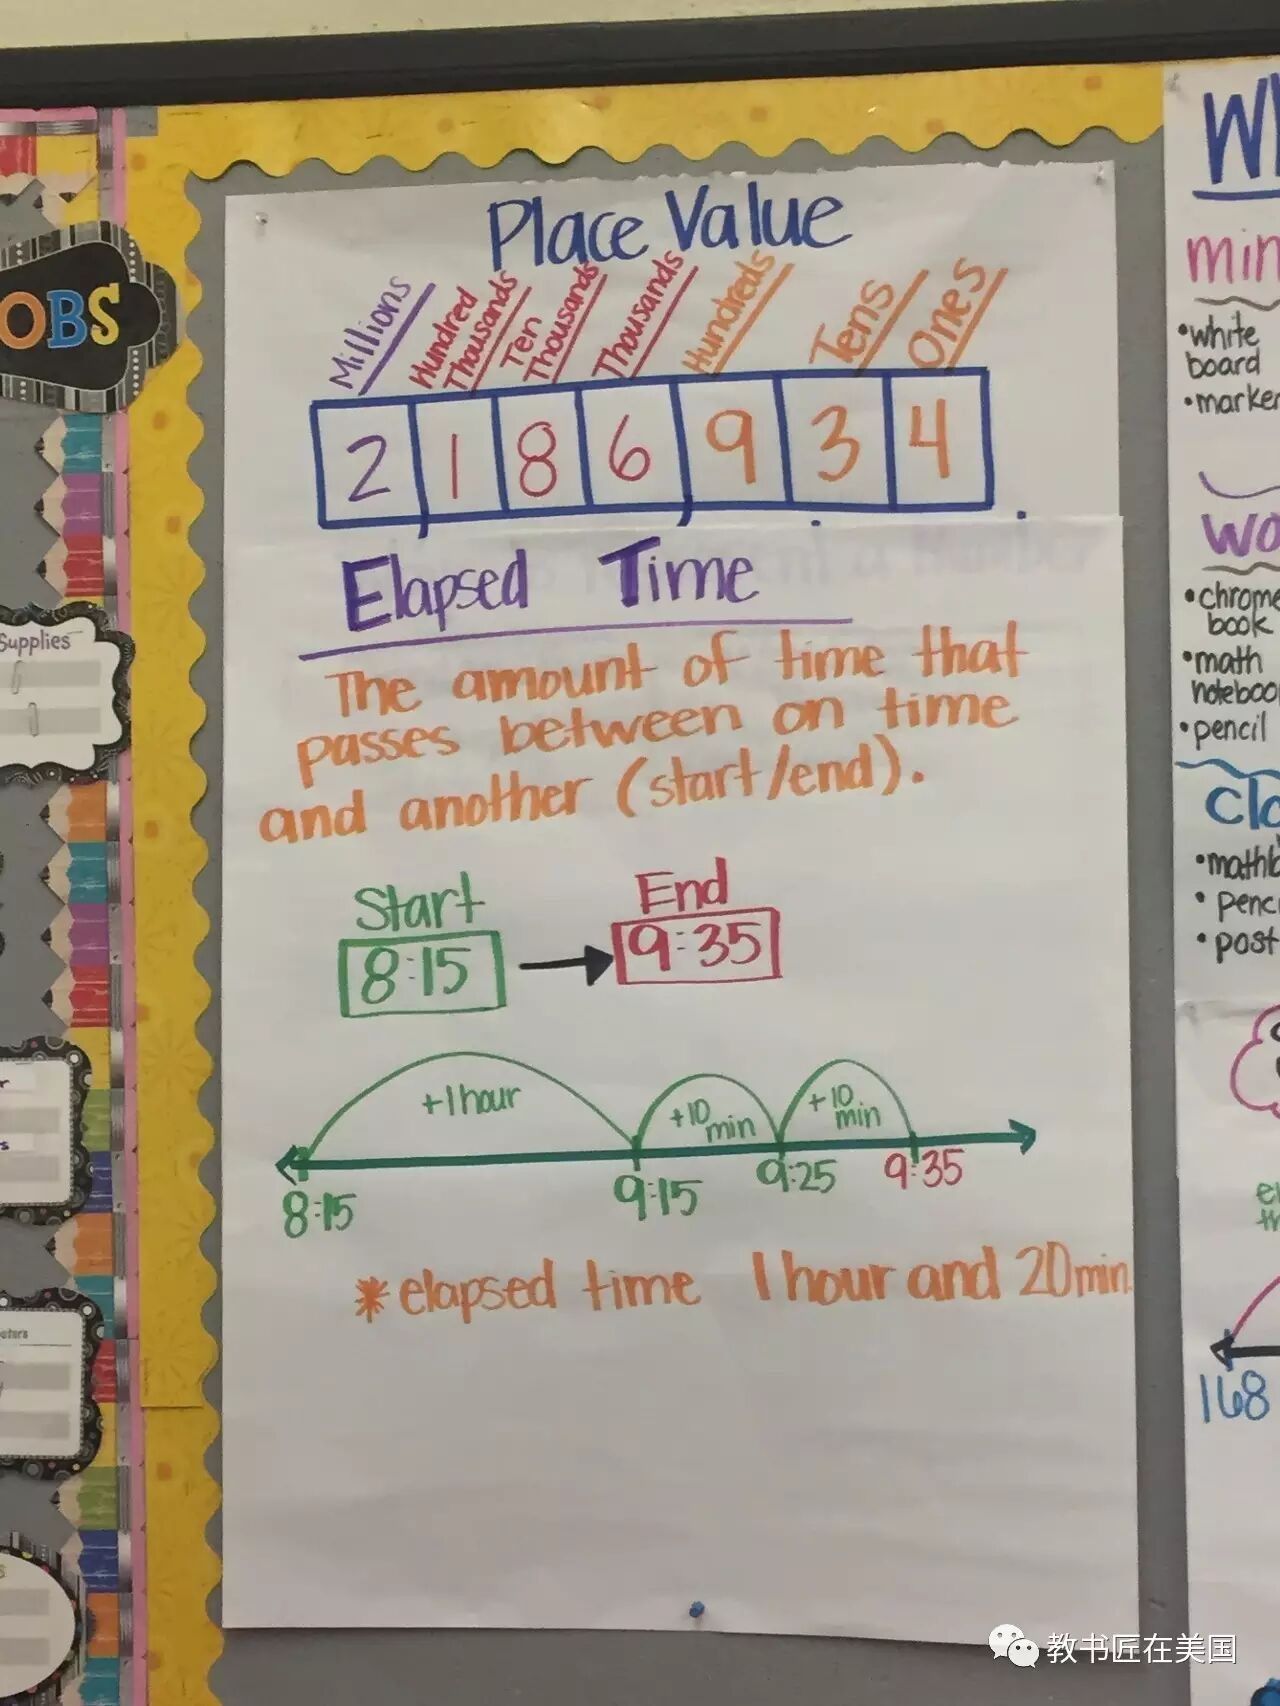 OBS
Supplies
Place Value
Millions
Hundred Thousands
Ten Thousands
Thousands
Hundreds
Tens
Ones
2,186,934.
Elapsed Time
The amount of time that
passes between on time
and another (start/end).
Start
End
8:15
9:35
+1 hour
+10 min
+10 min
8:15
9:15
9:25
9:35
*elapsed time 1 hour and 20 min.
•white
board
•marker
•chrome
book
•math
noteboo
•pencil
•mathb
•penc
•post
168
教书匠在美国